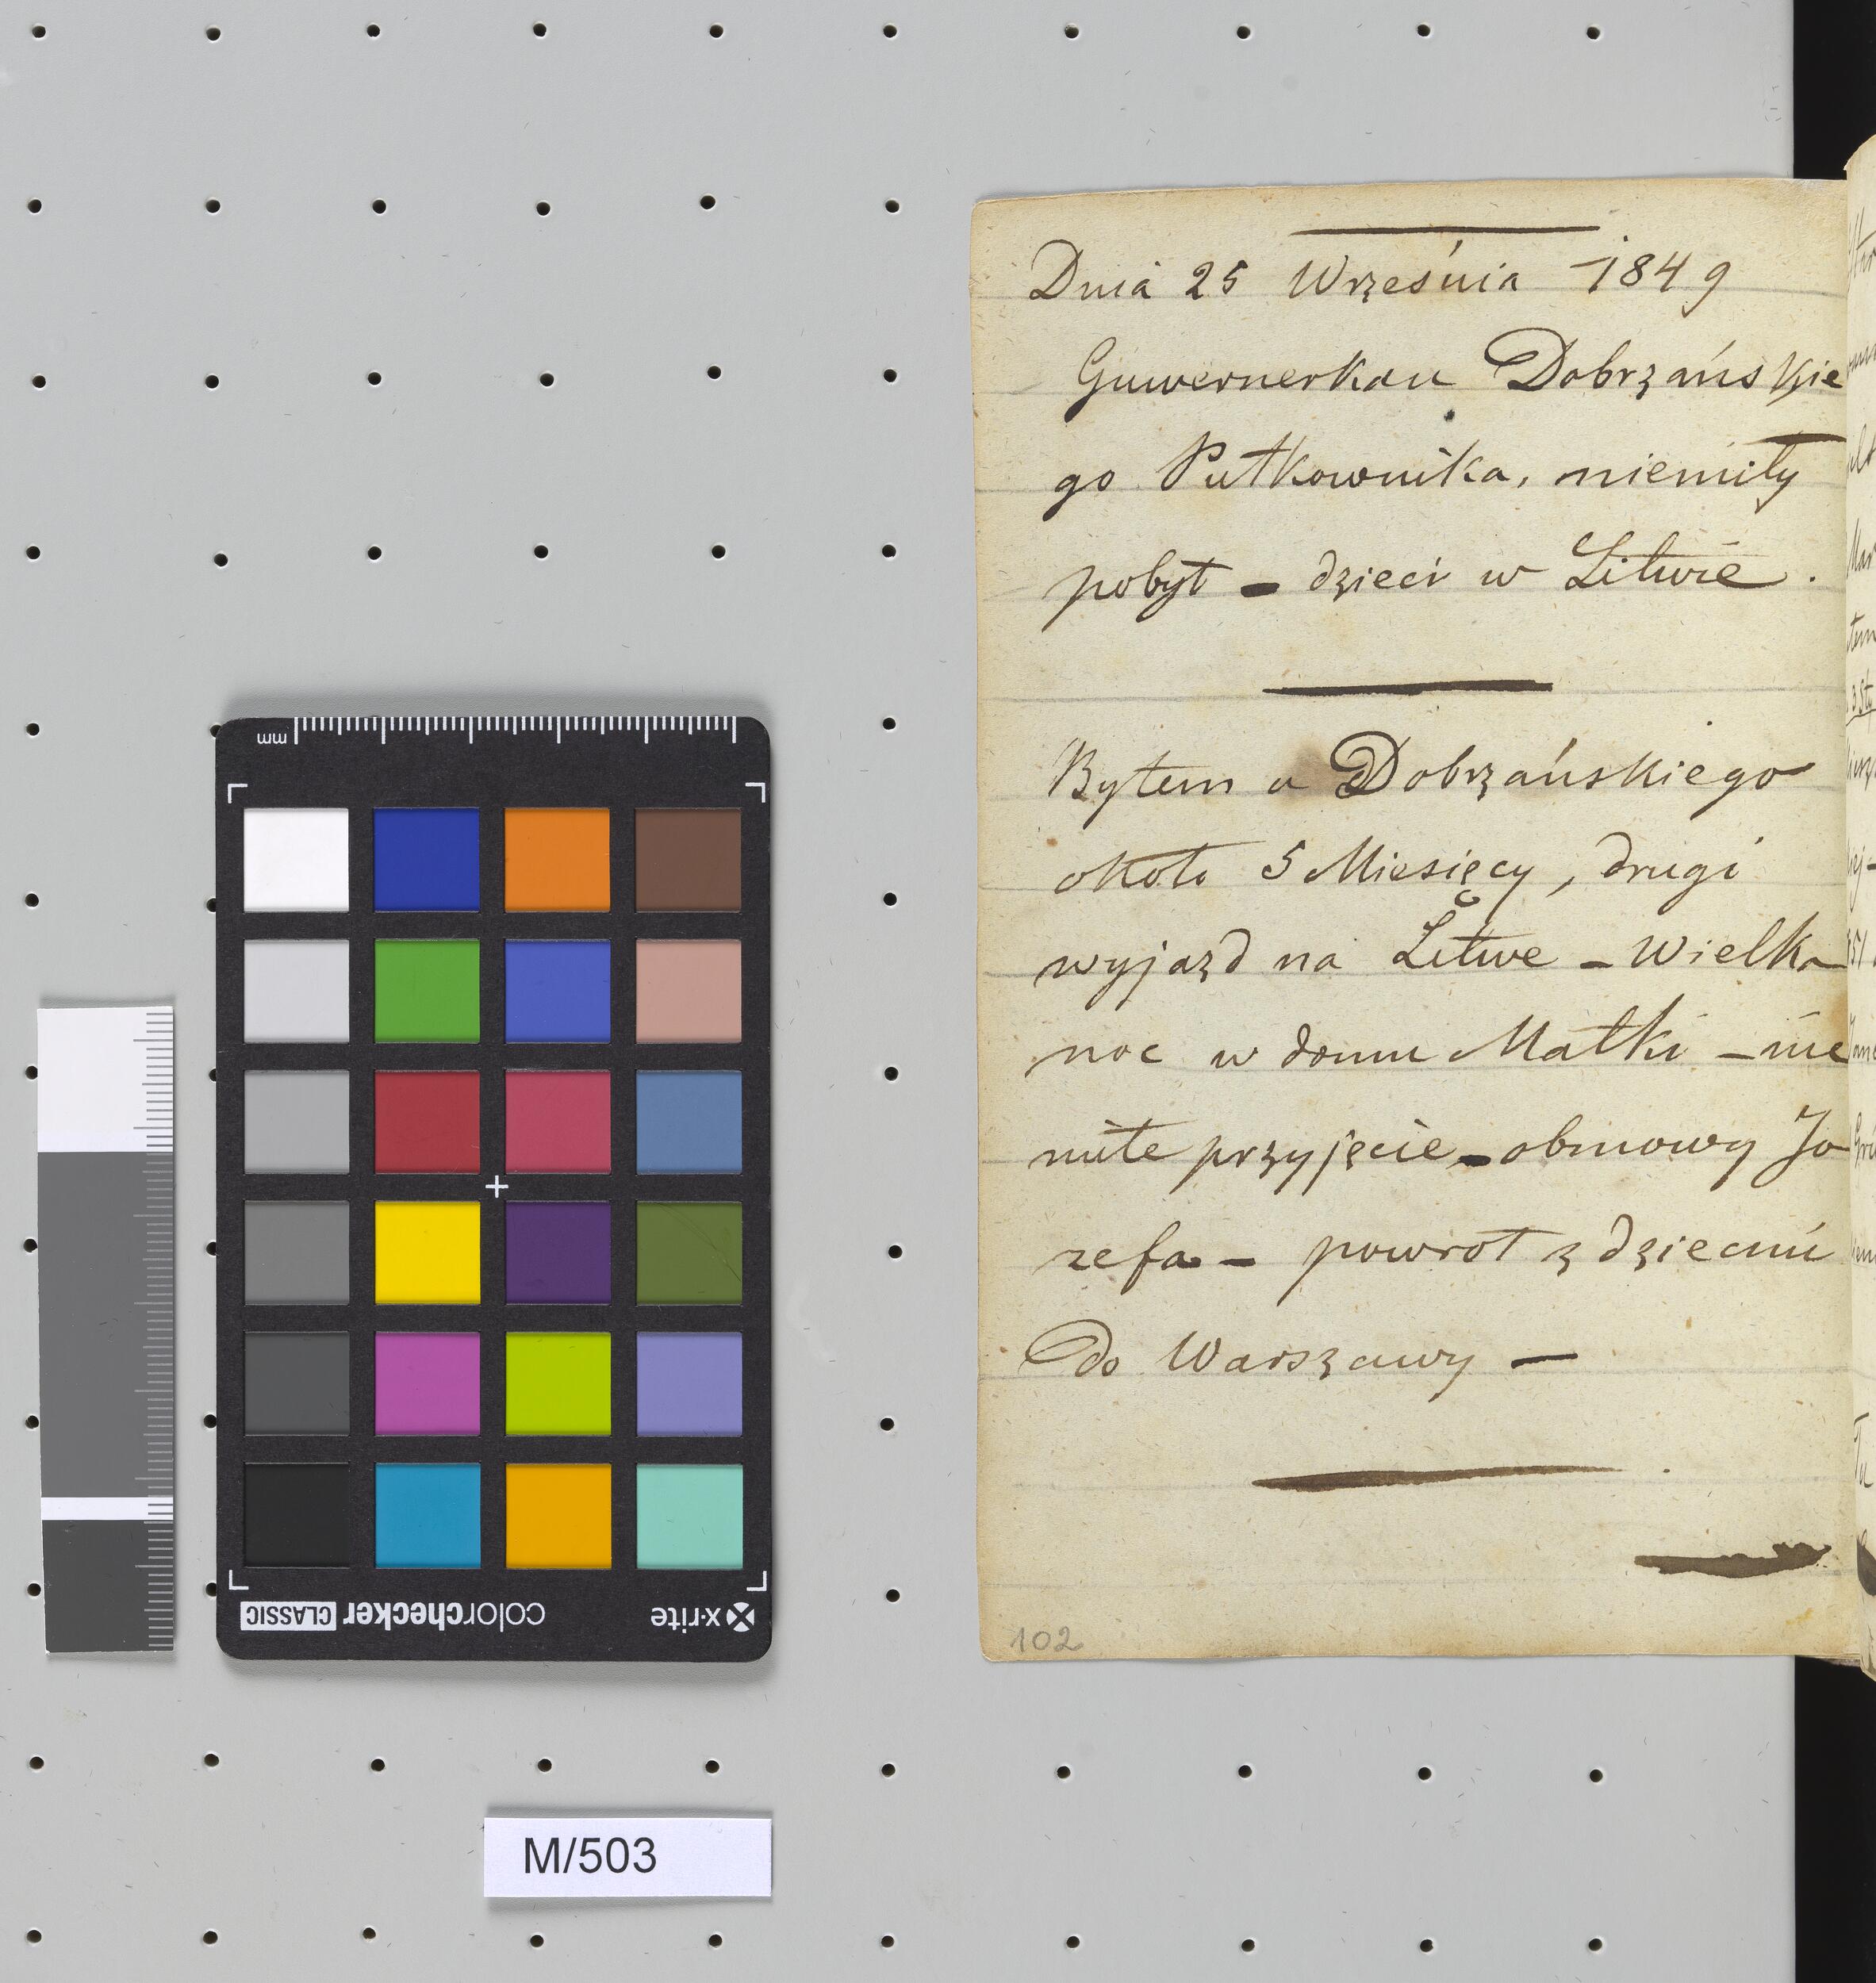 Dnia 25 Września 1849
Guwernerkau Dobrzańskie
go Pułkownika, niemiły
pobyt - dzieci w Litwie.
Byłem u Dobrzańskiego
około 5 Miesięcy, drugi
wyjazd na Litwe - Wielka
noc w domu Matki - nie
miłe przyjęcie - obmowy Jo
zefa - powrot z dziecmi
do Warszawy -
102
mm
colorchecker CLASSIC
x-rite
M/503